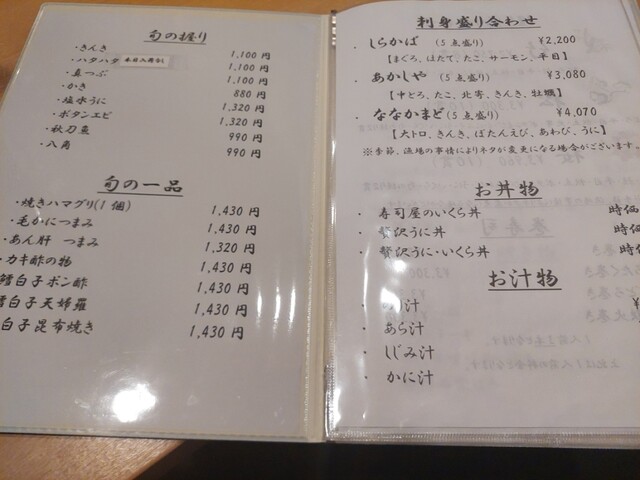 旬の握り
・きんき 1,100 円
・ハタハタ 本日入荷なし 1,100 円
・真つぶ 1,100 円
・かき 880 円
・塩水うに 1,320 円
・ボタンエビ 1,320 円
・秋刀魚 990 円
・八角 990 円
旬の一品
・焼きハマグリ(1個) 1,430 円
・毛かにつまみ 1,430 円
・あん肝 つまみ 1,320 円
・カキ酢の物 1,430 円
鱈白子ポン酢 1,430 円
鱈白子天婦羅 1,430 円
白子昆布焼き 1,430 円
刺身盛り合わせ
・しらかば (5点盛り) ¥2,200
【まぐろ、ほたて、たこ、サーモン、平目】
・あかしや (5点盛り) ¥3,080
【中とろ、たこ、北寄、きんき、牡蠣】
・ななかまど(5点盛り) ¥4,070
【大トロ、きんき、ぼたんえび、あわび、うに】
※季節、漁場の事情によりネタが変更になる場合がございます。
お丼物
・寿司屋のいくら丼 時価
・贅沢うに丼 時価
・贅沢うに・いくら丼 時価
お汁物
・ 汁 ¥
・あら汁
・しじみ汁
・かに汁